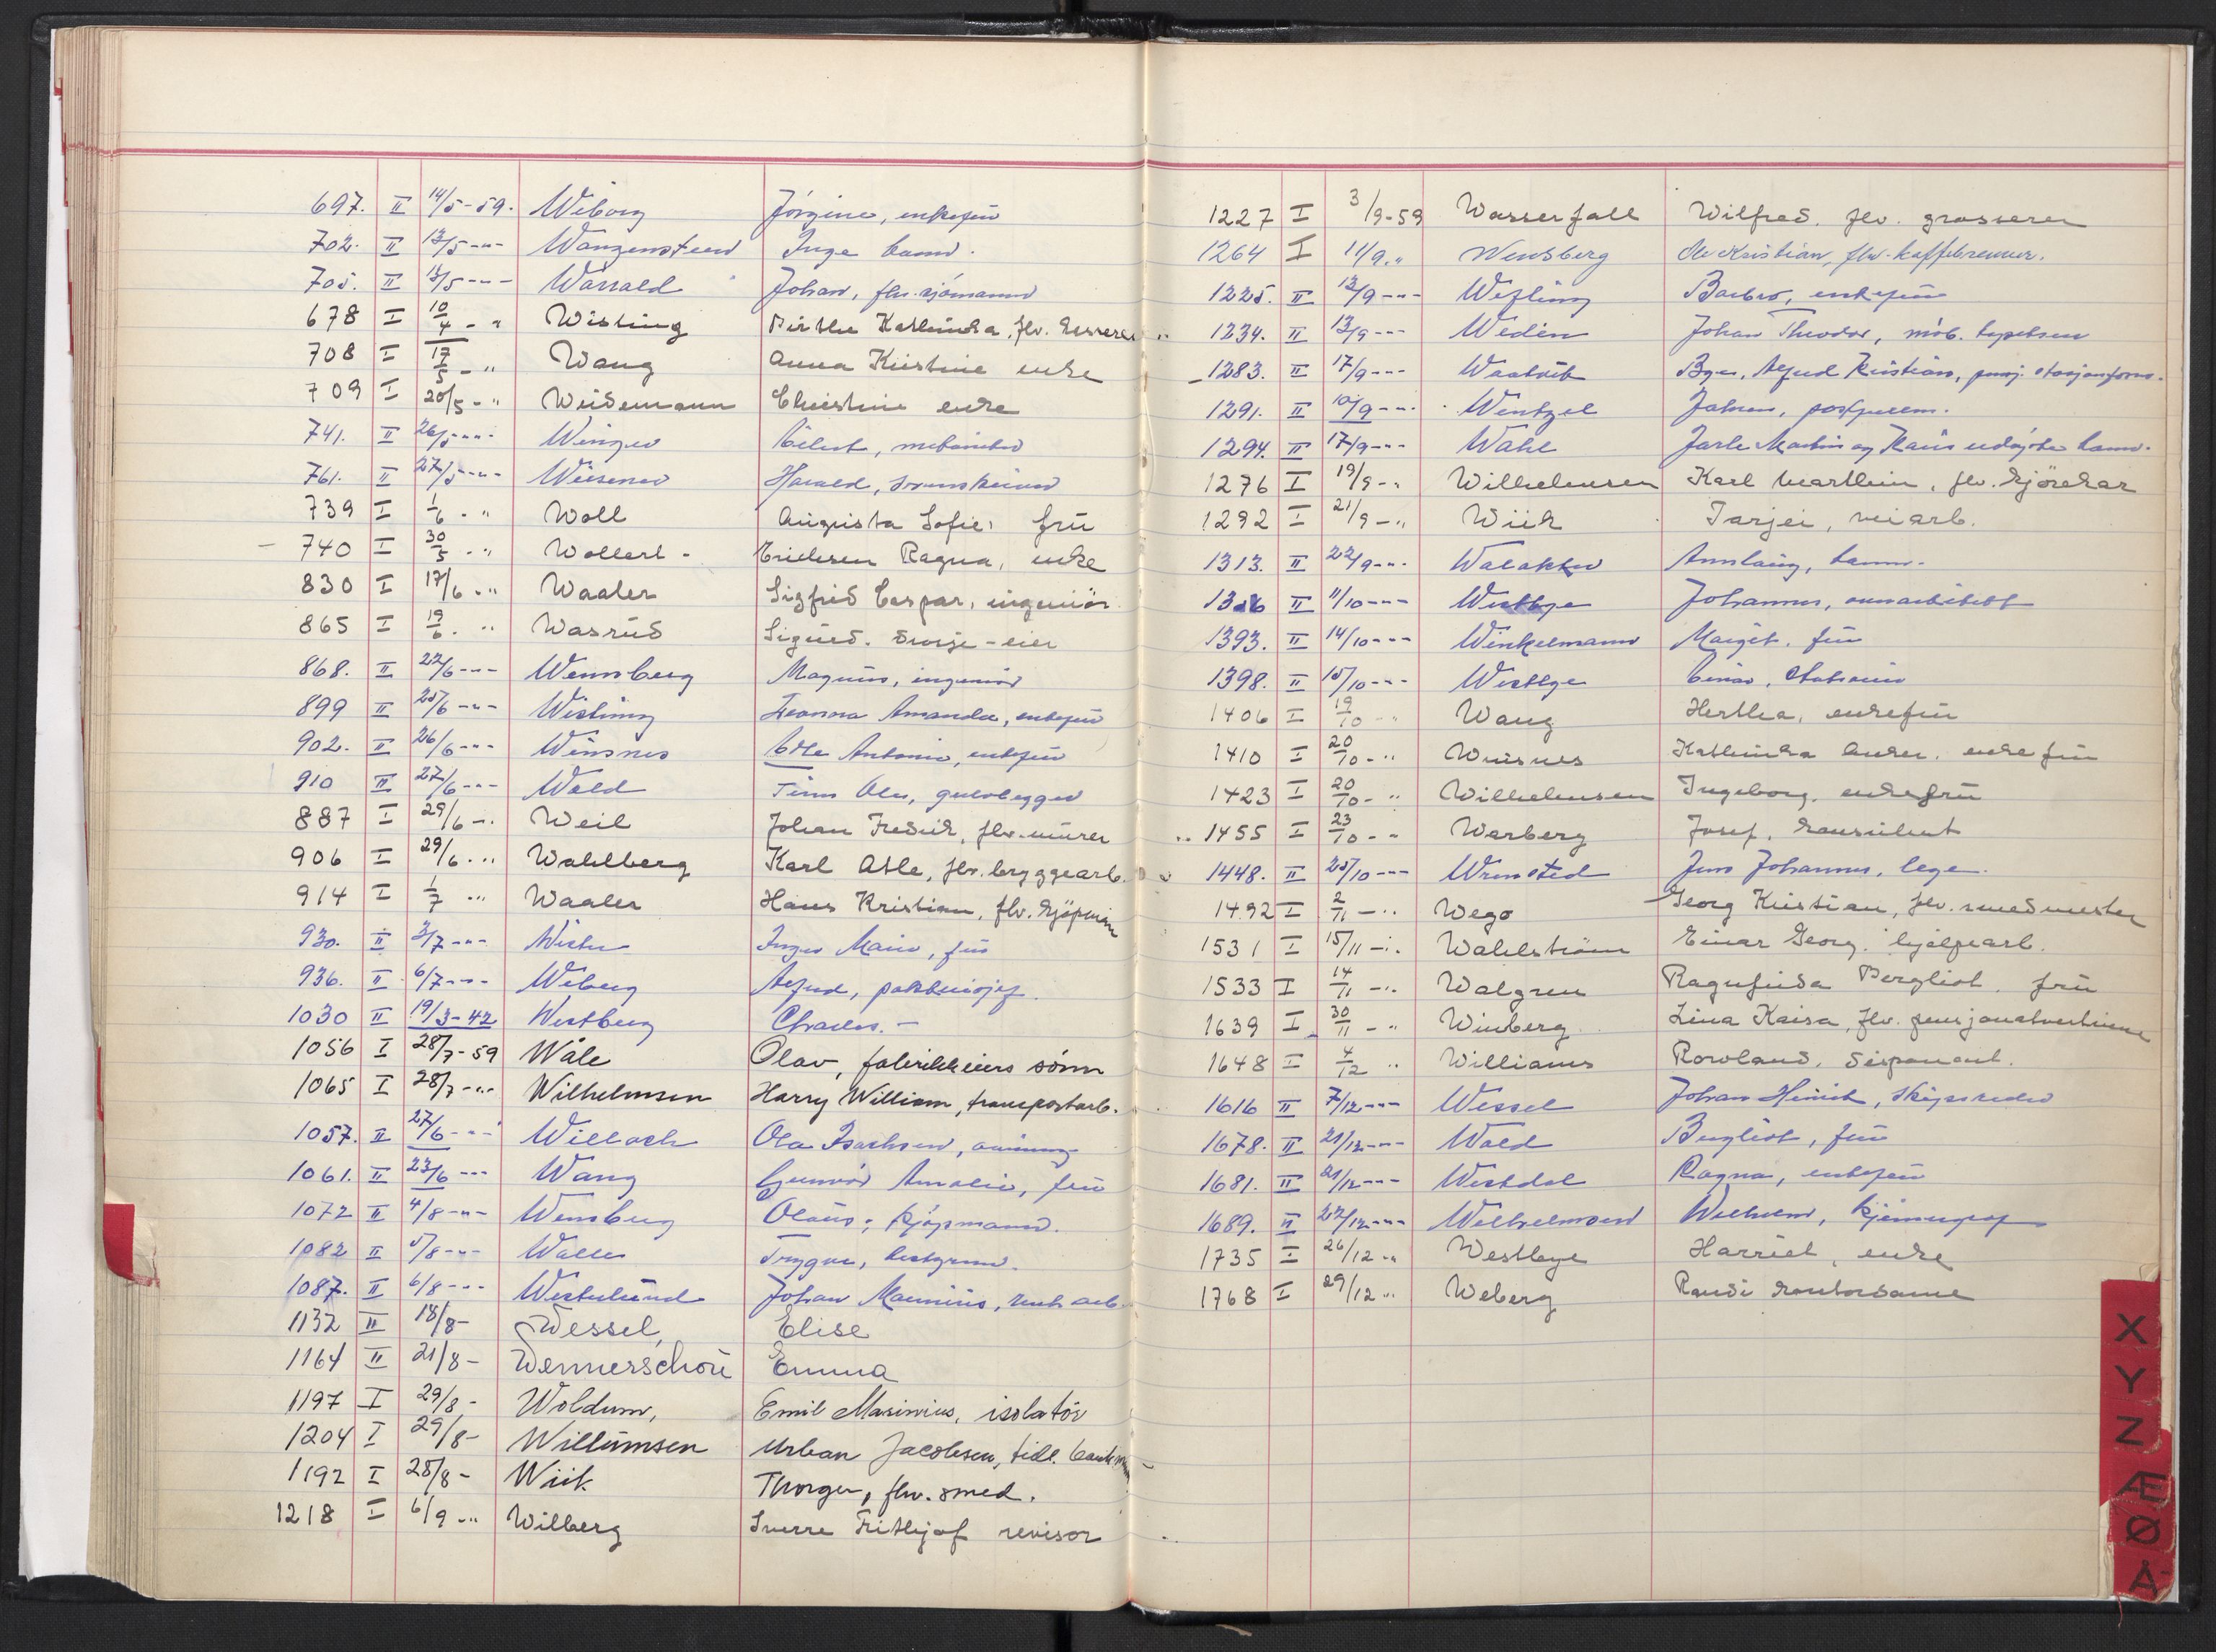 697. II 14/5-59. Wiborg Jörgine, enkefrü
702. II 13/5-"- Wangensteen Inge barn.
705. II 13/5-"- Johan, flv. sjömann
678 I 10/4-" Wisting Kathinka, flv.
708 I 17/5-" Wang Anna Kristine enke
709 I 20/5-" Weidemann Christine enke
741. II 26/5-"-
761. II 27/5-"- Harald,
739 I 1/6-" Woll Augusta Sofie, frü
- 740 I 30/5-" Wollert- Erichsen Ragna, enke
830 I 17/6-" Waaler Sigfred Caspar, ingeniör
865 I 19/6-" Wasrud Sigurd. drosje-eier
868. II 22/6-"- Wennberg Magnus, ingeniör
899 II 25/6-"- Wisting Amanda, enkefrü
902. II 26/6-"- Winsnes Antonie, enkefrü
910 II 27/6-"- Wold Finn gulvlegger
887 I 29/6-" Weil Johan Fredrik, flv. murer
906 I 29/6-" Wahlberg Karl Atle, flv. bryggearb.
914 I 1/7-" Waaler Hans Kristian, flv. kjöpmann
930. II 3/7-"- Inger Marie, frü
936. II 6/7-"- Wiberg
1030 II 19/3-42 Westberg Charles.-
1056 I 28/7-59 Wåle Olav, fabrikkeiers sönn
1065 I 28/7-"- Wilhelmsen Harry William, transportarb.
1057. II 27/6-"- Willoch Ola Isachsen,
1061. II 23/6-"- Wang Gunvor Amalie, frü
1072 II 4/8-"- Wennberg Olaus, kjöpmann.
1082 II 5/8-"- Waller Trygve, bestyrer.
1087. II 6/8-"- Westerlund Johan
1132 II 18/8- Wessel, Elise
1164 II 21/8- Wennerschou Emma
1197 I 29/8- Woldum, Emil Marinius, isolatör
1204 I 29/8- Willumsen Urban Jacobsen, tidl.
1192 I 28/8- Wiik Thorger, flv. smed.
1218 I 6/9-" Wilberg Sverre Frithjof revisor
1227 I 3/9-59 Wasserfall Wilfred. flv. grosserer
1264 I 11/9." Wensberg Ole Kristian, flv. kaffebrenner.
1225. II 12/9-"- Barbro, enkefrü
1234. II 13/9-"- Wedén Johan Theodor, möb. tapetserer
1283. II 17/9-"- Kristian, pensj. stasjonsform.
1291. II 10/9-"- Wentzel postfullm.
1294. II 17/9-"- Wahl Jarle Martin og Karis udöpte barn.
1276 I 19/9-" Wilhelmsen Karl Marthin, flv. kjörekar
1292 I 21/9-" Wiik Tarjei, veiarb.
1313. II 22/9-"- Annlaug, barn.
II 11/10-"- Westbye Johannes,
1393. II 14/10-"- Winkelmann Margit, frü
1398. II 15/10-"- Westbye Einar,
1406 I 19/10-" Wang Hertha, enkefrü
1410 I 20/10-" Winsnes Kathinka enkefrü
1423 I 20/10-" Wilhelmsen Ingeborg, enkefrü
1455 I 23/10-" Warberg Josef, konsulent
1448. II 25/10-"- Jens Johannes, lege.
1492 I 2/11-" Wego Georg Kristian, flv. smedmester
1531 I 15/11-" Wahlström Einar Georg. hjelpearb.
1533 I 14/11-" Walgren Ragnfrida Bergliot. frü
1639 I 30/11-" Winberg Lina Kaisa, flv. pensjonatvertinne
1648 I 4/12" Williams Rowland, disponent.
1616 II 7/12-"- Wessel Johan Hinrich, skipsreder
1678. II 21/12-"- Wold Bergliot, frü
1681. II 21/12-"- Westdal Ragna, enkefrü
1689. II 22/12-"- Wilhelmsen Wilhelm, kjemigraf
1735 I 26/12" Westbye Harriet, enke
1768 I 29/12" Weberg Randi kontordame
X
Y
Z
Æ
Ø
Å